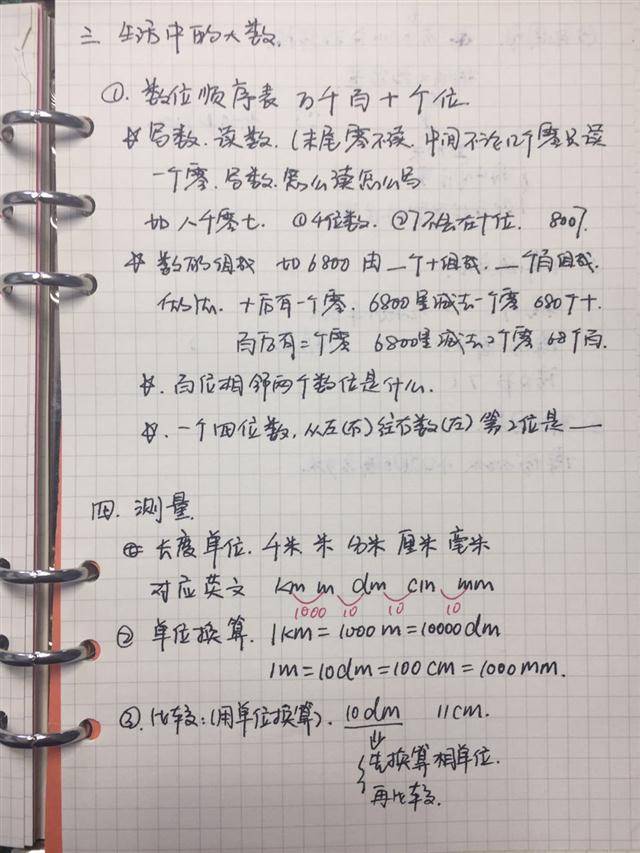 三 生活中的大数.
①. 数位顺序表 万千百十个位
☆ 写数. 读数. (末尾零不读. 中间不论几个零只读
一个零. 写数. 怎么读怎么写
如 八千零七. ①4位数. ②7不会在十位. 8007.
☆ 数的组成 如6800 由__个十组成. __个百组成.
十后有一个零. 6800里减去一个零 680个十.
百后有二个零 6800里减去2个零 68个百.
☆. 百位相邻两个数位是什么.
☆. 一个四位数, 从左(右)往右数(左) 第2位是__
四. 测量.
① 长度单位. 千米 米 分米 厘米 毫米
对应英文 km m dm cm mm
1000 10 10 10
② 单位换算. 1km=1000m=10000dm
1m=10dm=100cm=1000mm.
③. 比较: (用单位换算). 10dm 11cm.
先换算相单位.
再比较.